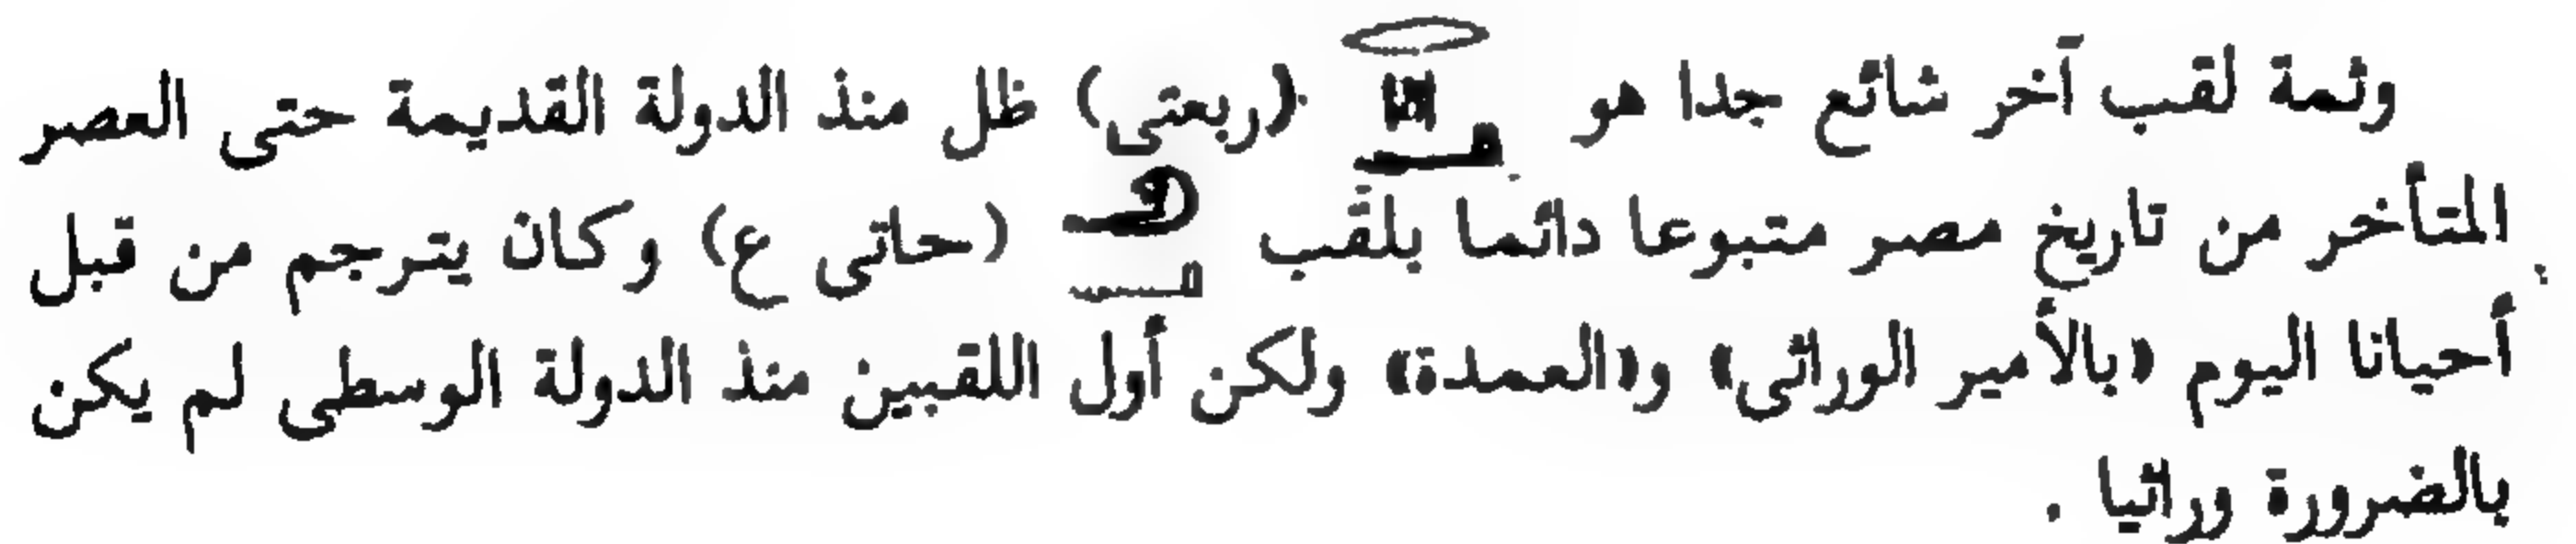 وثمة لقب آخر شائع جدا هو 𓂋𓊪𓂝 (ربعتى) ظل منذ الدولة القديمة حتى العصر
المتأخر من تاريخ مصر متبوعا دائما بلقب 𓄂𓂝 (حاتى ع) وكان يترجم من قبل
أحيانا اليوم «بالأمير الوراثى» و«العمدة» ولكن أول اللقبين منذ الدولة الوسطى لم يكن
بالضرورة وراثيا .